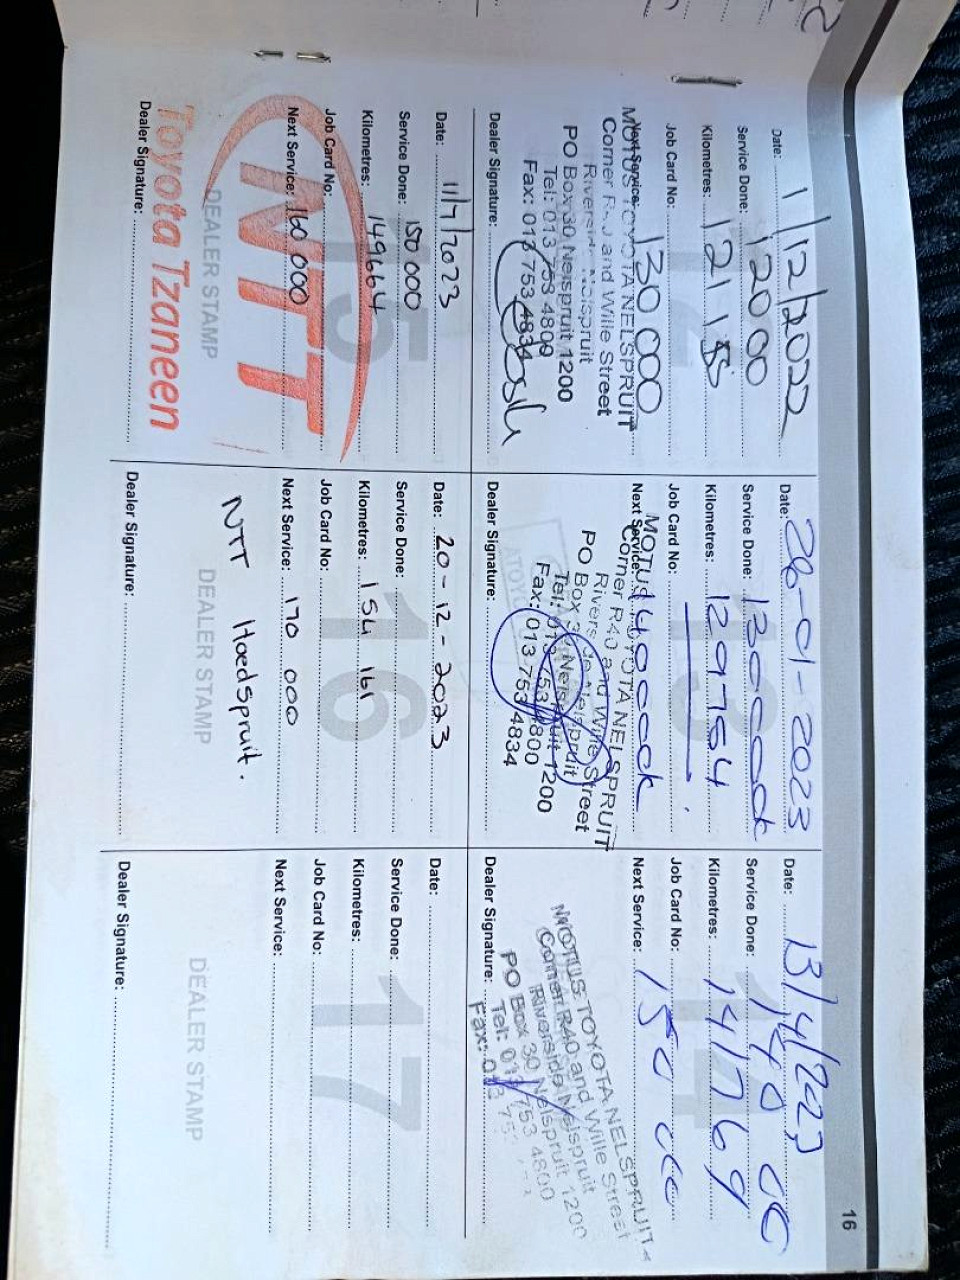 16
12
Date: 1/12/2022
Service Done: 12000
Kilometres: 121155
Job Card No:
Next Service: 130 000
MOTUS TOYOTA NELSPRUIT
Corner R40 and Wille Street
Riverside Nelspruit
PO Box 30 Nelspruit 1200
Tel: 013 753 4800
Fax: 013 753 4834
Dealer Signature:
13
Date: 26-01-2023
Service Done: 130000k
Kilometres: 129764
Job Card No:
Next Service: 140000k
MOTUS TOYOTA NELSPRUIT
Corner R40 and Wille Street
Riverside Nelspruit
PO Box 30 Nelspruit 1200
Tel: 013 753 4800
Fax: 013 753 4834
Dealer Signature:
14
Date: 13/4/223
Service Done: 140 000
Kilometres: 141769
Job Card No:
Next Service: 150 000
MOTUS TOYOTA NELSPRUIT
Corner R40 and Wille Street
Riverside Nelspruit
PO Box 30 Nelspruit 1200
Tel: 013 753 4800
Fax: 013 75
Dealer Signature:
15
Date: 11/7/2023
Service Done: 150 000
Kilometres: 149664
Job Card No:
Next Service: 160 000
NTT
DEALER STAMP
Toyota Tzaneen
Dealer Signature:
16
Date: 20-12-2023
Service Done:
Kilometres: 154 161
Job Card No:
Next Service: 170 000
NTT Hoedspruit.
DEALER STAMP
Dealer Signature:
17
Date:
Service Done:
Kilometres:
Job Card No:
Next Service:
DEALER STAMP
Dealer Signature: